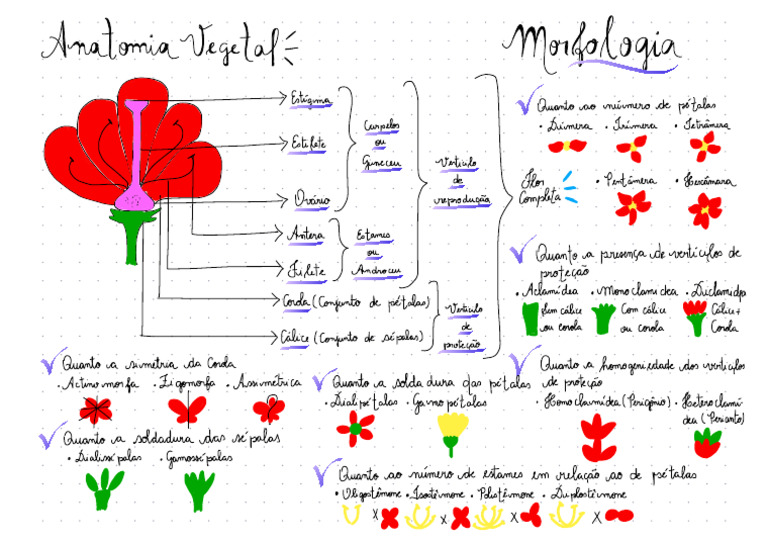 Anatomia Vegetal
Morfologia
Estigma
Estilete
Ovário
Antera
Filete
Corola (Conjunto de pétalas)
Cálice (Conjunto de sépalas)
Carpelos
ou
Gineceu
Estames
ou
Androceu
Verticulo
de
reprodução
Verticulo
de
proteção
Flor
Completa
Quanto ao número de pétalas
• Dímera • Trímera • Tetrâmera
• Pentâmera • Hexâmera
Quanto a presença de verticulos de
proteção
• Aclamídea • Monoclamidea • Diclamidea
Sem cálice
ou corola
Com cálice
ou corola
Cálice +
Corola
Quanto a simetria da Corola
• Actinomorfa • Zigomorfa • Assimetrica
Quanto a soldadura das sépalas
• Dialissépalas • Gamossépalas
Quanto a soldadura das pétalas
• Dialipétalas • Gamopétalas
Quanto a homogeniedade dos verticulos
de proteção
• Homoclamídea (Perigônio) • Heteroclamí
dea (Perianto)
Quanto ao número de estames em relação ao de pétalas
• Oligostêmone • Isostêmone • Polistêmone • Diplostêmone
x x x x